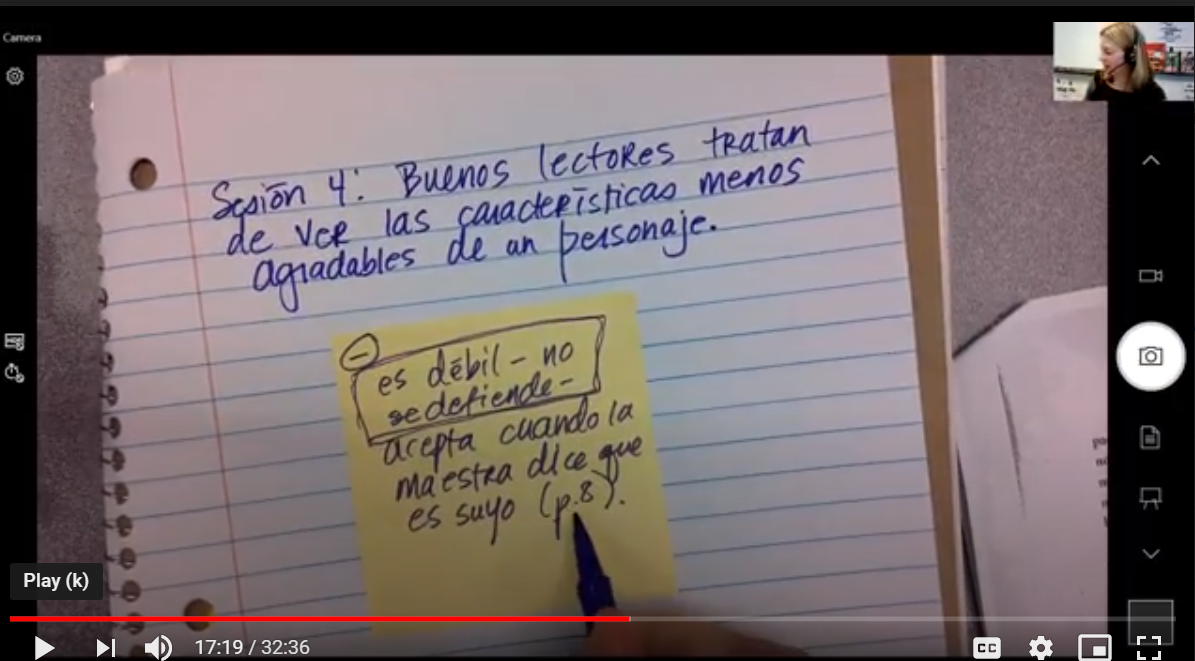 Camera
Sesión 4: Buenos lectores tratan
de ver las características menos
agradables de un personaje.
−
es débil - no
se defiende -
acepta cuando la
maestra dice que
es suyo (p.8).
Play (k)
17:19 / 32:36
CC